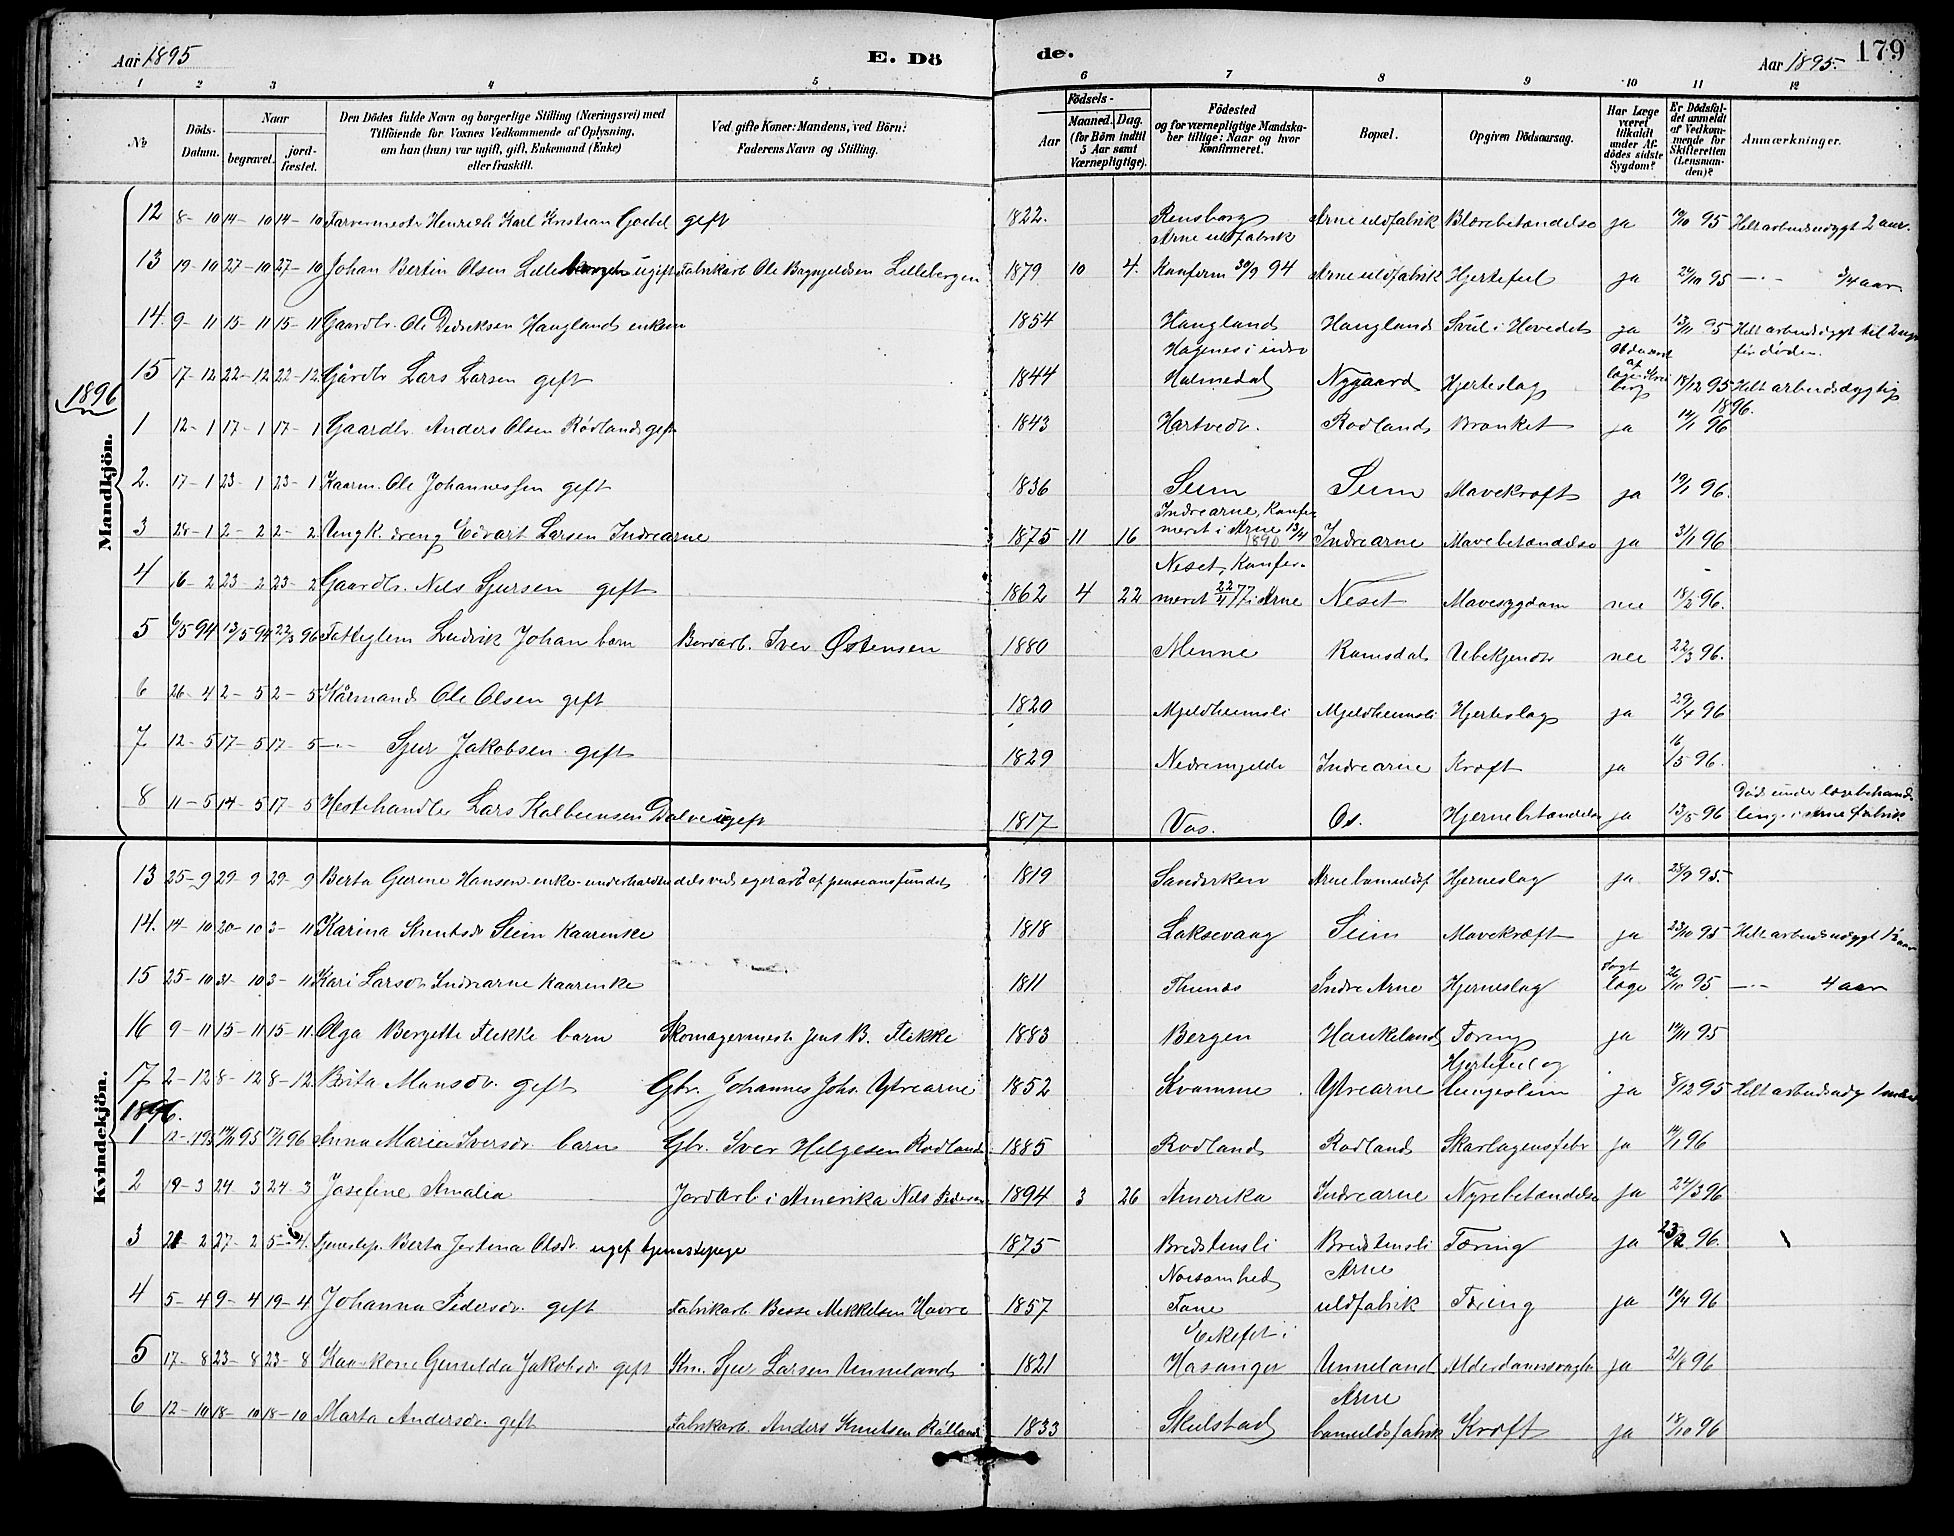 Aar 1895 E. Dö de. Aar 1895. 179
1 2 3 4 5 6 7 8 9 10 11 12
No Döds-Datum. Naar begravet. jordfæstet. Den Dödes fulde Navn og borgerlige Stilling (Næringsvei) med Tilföiende for Voxnes Vedkommende af Oplysning, om han (hun) var ugift, gift, Enkemand (Enke) eller fraskilt. Ved gifte Koner: Mandens, ved Börn: Faderens Navn og Stilling. Födsels- Aar Maaned. Dag. (for Börn indtil 5 Aar samt Værnepligtige). Födested og for værnepligtige Mandskaber tillige: Naar og hvor Konfirmeret. Bopæl. Opgiven Dödsaarsag. Har Læge været tilkaldt under Afdödes sidste Sygdom? Er Dödsfaldet anmeldt af Vedkommende for Skifteretten (Lensmanden)? Anmærkninger.
Mandkjön.
12 8-10 14-10 14-10 Farvermester Henrich Karl Kristian Goebel gift 1822. Rensborg Arne uldfabrik Blærebetændelse ja 95 Helt arbeidsudygt 2 aar.
13 19-10 27-10 27-10 Johan Bertin Olsen Lillebergen ugift Fabrikarb. Ole Lillebergen 1879 10 4. Arne uldfabrik Konfirm 30/9 94 Arne uldfabrik Hjertefeil ja 24/10 95 —"— 3/4 aar
14. 9-11 15-11 15-11 Gaardbr. Ole Dedriksen Hauglands enkem 1854 Haugland Haugland Svul i Hovedet ja 13/11 95 Helt før døden.
15 17-12 22-12 22-12 Gårdbr Lars Larsen gift 1844 Hagenes i indre Holmedal Nygaard Hjerteslag 18/12 95 Helt arbeidsdygtig
1896 1896.
1 12-1 17-1 17-1 Gaardbr. Anders Olsen Rödland gift 1843 Hartvedt. Rodland Bronket ja 14/1 96
2. 17-1 23-1 23-1 Kaarm. Ole Johannessen gift 1836 Seim Seim Mavekræft ja 19/1 96.
3 28-1 2-2 2-2 Ungk. dreng Edvart Larsen Indrearne 1875 11 16 Indrearne, Konfirmeret i Arne 13/4 1890 Indrearne Mavebetændelse ja 31/1 96
4 16-2 23-2 23-2 Gaardbr. Nils Sjursen gift 1862 4 22 Neset, Konfirmeret 22/4 77 i Arne Neset Mavesygdom nei 18/2 96.
5 6/5 94 13/5 94 22/3 96 Fattiglem Ludvik Johan barn Bordarb. Iver Østensen 1880 Menne Ramsdal Ubekjendt nei 22/3 96.
6 26-4 2-5 2-5 Kårmand Ole Olsen gift 1820 Mjeldheimsli Mjeldheimsli Hjerteslag ja 29/4 96
7 12-5 17-5 17-5 —"— Sjur Jakobsen gift 1829 Nedremjelde Indrearne Kræft ja 16/5 96.
8 11-5 14-5 17-5 Hestehandler Lars Kolbeinsen Dolve ugift 1817 Vos. Os. Hjernebetændelse ja 13/5 96 Död under lægebehandling i Arne fabrik
Kvindekjön.
13 25-9 29-9 29-9 Berta Gurine Hansen enke underholdt dels ved eget arb. af pensionsfundet 1819 Sandviken Arne bomuldsf Hjerneslag ja 28/9 95.
14. 14-10 20-10 3-11 Karina Knutsdr Seim Kaarenke 1818 Laksevaag Seim Mavekræft ja 23/10 95 Helt arbeidsudygt
15 25-10 31-10 3-11 Kari Larsdr Indrearne Kaarenke 1811 Thunes Indre Arne Hjerneslag Søgt læge 26/10 95 —"— 4 aar
16 9-11 15-11 15-11. Olga Bergette Flekke barn Skomagermest. Jens B. Flekke 1883 Bergen Haukeland Tæring ja 95
17 2-12 8-12 8-12 Brita Monsdr. gift Gbr. Johannes Johs. Ytrearne 1852 Kvamme Ytrearne Hjertefeil og lungeslim ja 8/12 95 Helt arbeidsudyg 1
1896.
1 12- 95 96 Anna Maria Iversdr barn Gbr. Iver Helgesen Rodland 1885 Rodland Rodland Skarlagensfebr ja 14/1 96
2 19-3 24-3 24-3 Josefine Amalia Jordarb i Amerika Nils Pedersen 1894 3 26 Amerika Indrearne Nyrebetændelse ja 24/3 96
3 21 2 27-2 5-4. Tjenestep. Berta Jertina Olsdr. ugift tjenestepige 1875 Bredstensli Bredstensli Tæring ja 23/2 96.
4 5-4 9-4 19-4 Johanna Pedersdr. gift Fabrikarb. Besse Mikkelsen Havre 1857 Fane Arne uldfabrik Tæring ja 10/4 96
5 17-8 23-8 23-8 Kaarkone Gunilda Jakobsdr gift Km. Sjur Larsen Unneland 1821 Eekefet i Hosanger Unneland Alderdomssvaghe ja 21/8 96
6 12-10 18-10 18-10 Marta Andersdr. gift Fabrikarb. Anders Knutsen Rölland 1833 Skulstad Arne bomuldsfabrik Kræft ja 18/10 96